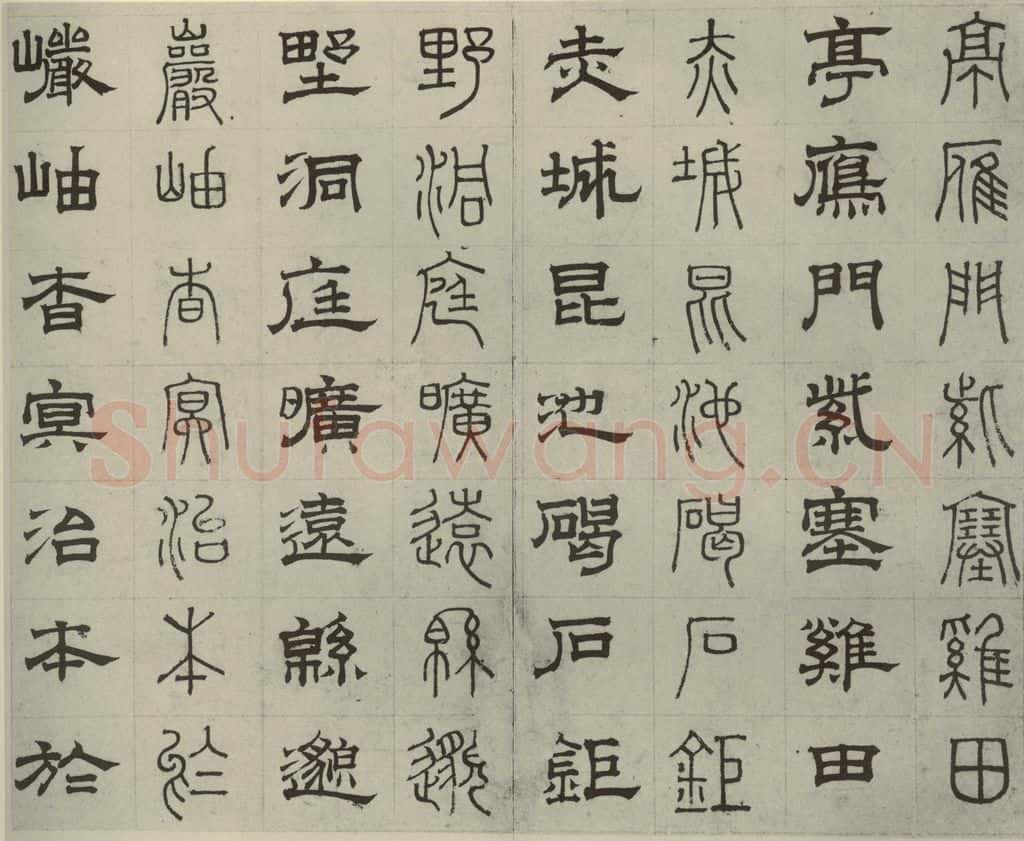 亭鴈門紫塞雞田
亭鴈門紫塞雞田
赤城昆池碣石鉅
赤城昆池碣石鉅
野洞庭曠遠緜邈
野洞庭曠遠緜邈
巖岫杳冥治本於
巖岫杳冥治本於
Shufawang.CN